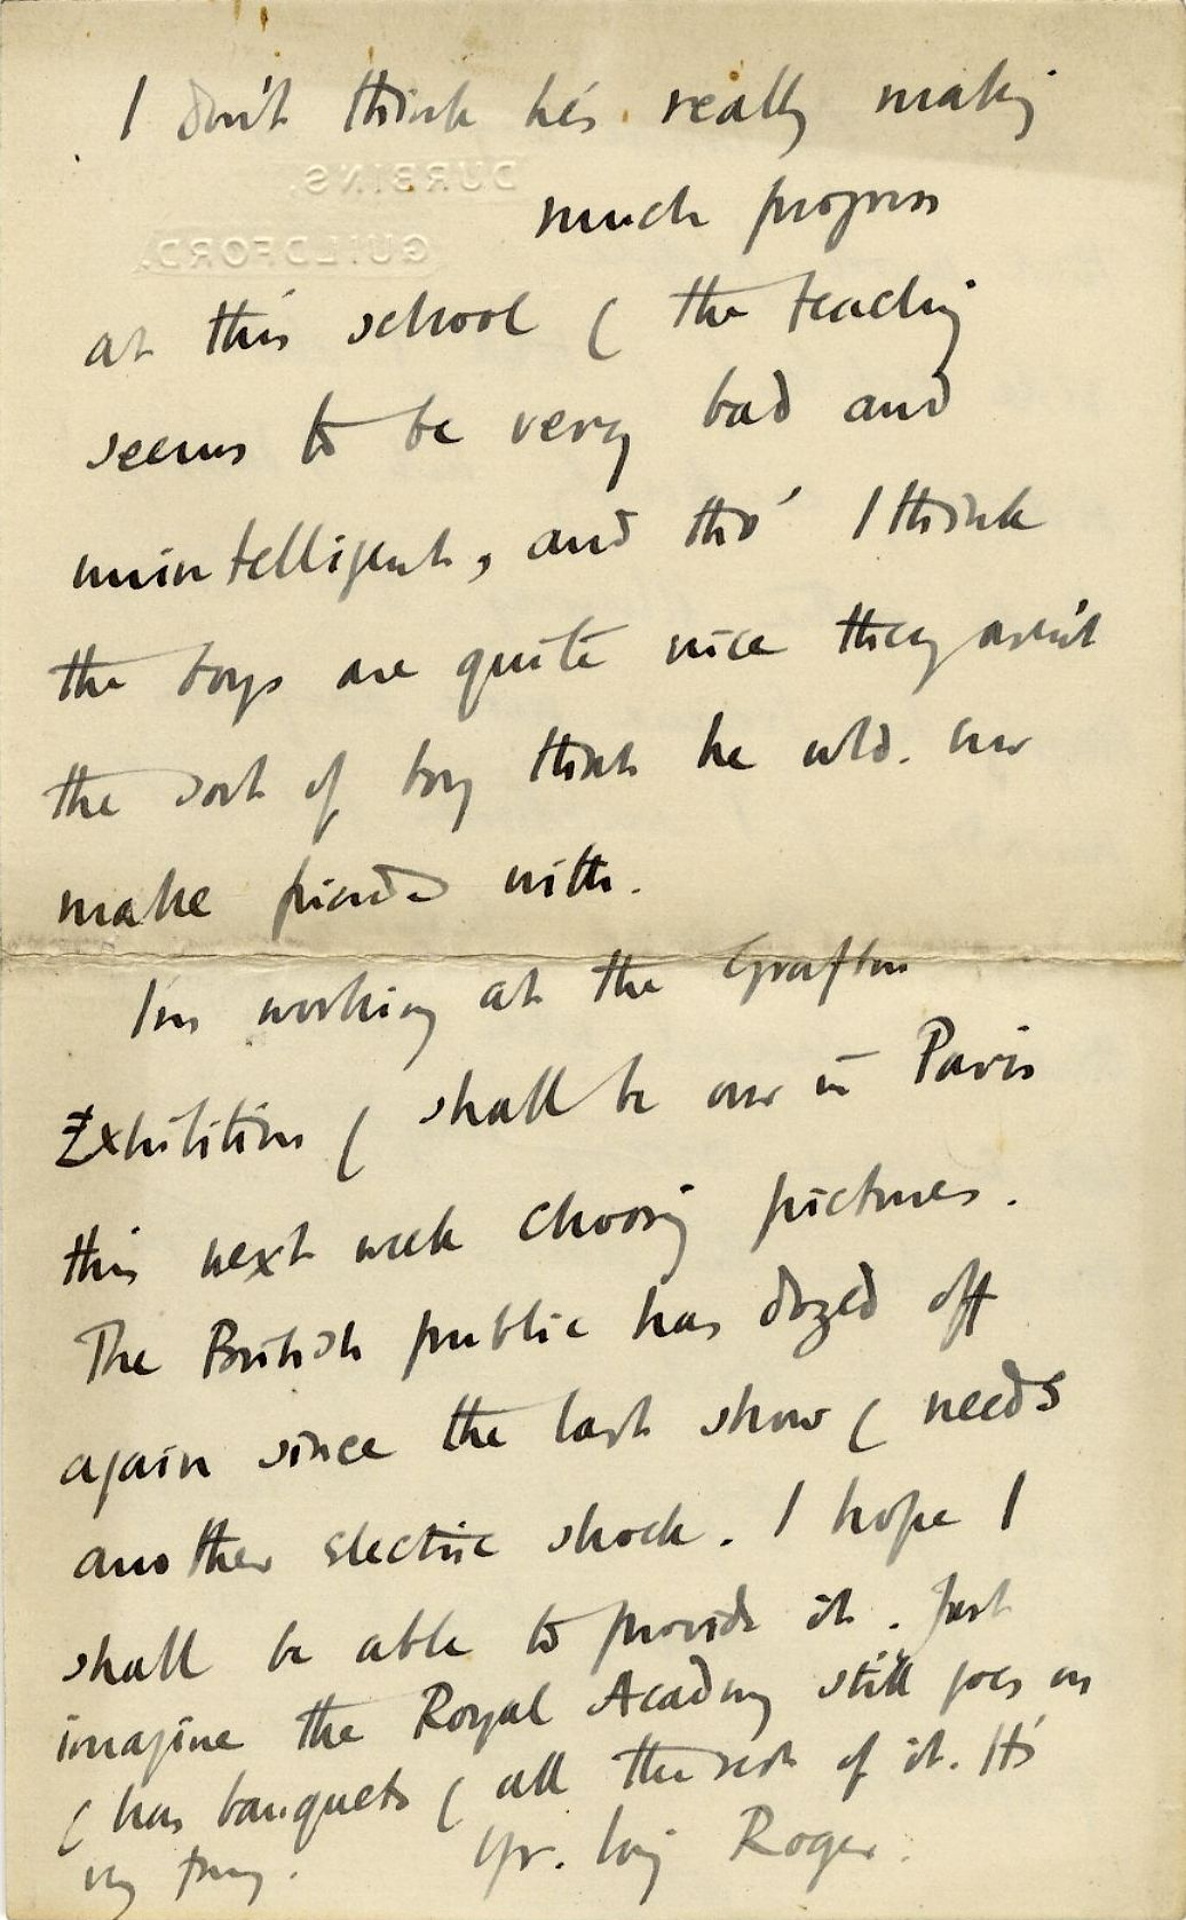 I don't think he's really making
DURBINS.
much progress
GUILDFORD.
at this school ( the teaching
seems to be very bad and
unintelligent, and tho' I think
the boys are quite nice they aren't
the sort of boy think he wld. ever
make friends with.
I'm working at the Grafton
Exhibition ( shall be over in Paris
this next week choosing pictures.
The British public has dozed off
again since the last show ( needs
another electric shock. I hope I
shall be able to provide it. Just
imagine the Royal Academy still goes on
( has banquets ( all the rest of it. It's
vy funny. Yr. lvig Roger.